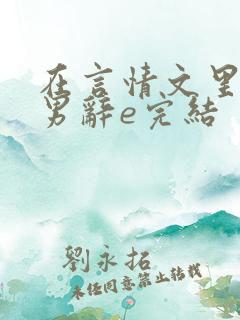 在言情文里
男辭e完結
劉永拓
未經同意禁止轉載